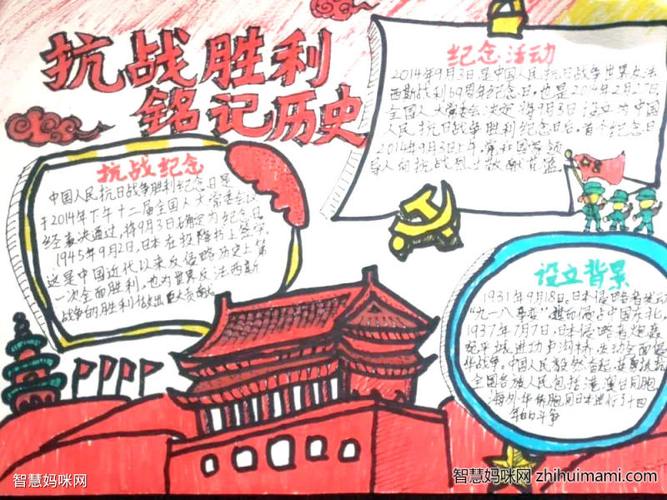 抗战胜利
铭记历史
纪念活动
2014年9月3日是中国人民抗日战争暨世界反法
西斯战利69周年纪念日,也是2014年2月27日
全国人大常委会决定将9月3日设立为中国
人民抗日战争胜利纪念日后,首个纪念日
2014年9月3日上午,党和国家领
导人向抗战烈士敬献花篮
抗战纪念
中国人民抗日战争胜利纪念日是
于2014年下午十二届全国人大常委会
经表决通过,将9月3日确定为纪念日
1945年9月2日,日本在投降书上签字
这是中国近代以来反侵略历史上第
一次全面胜利,也为世界反法西斯
战争的胜利做出巨大贡献
设立背景
1931年9月18日,日本侵略者发动
"九一八事变",占中国东北.
1937年7月7日,日本侵略者炮轰
宛平城进攻卢沟桥,发动全面侵
华战争。中国人民毅然奋起,
全国各族人民包括港澳台同胞
海外华侨胞同日本进行了十四
年的斗争
智慧妈咪网
智慧妈咪网 zhihuimami.com